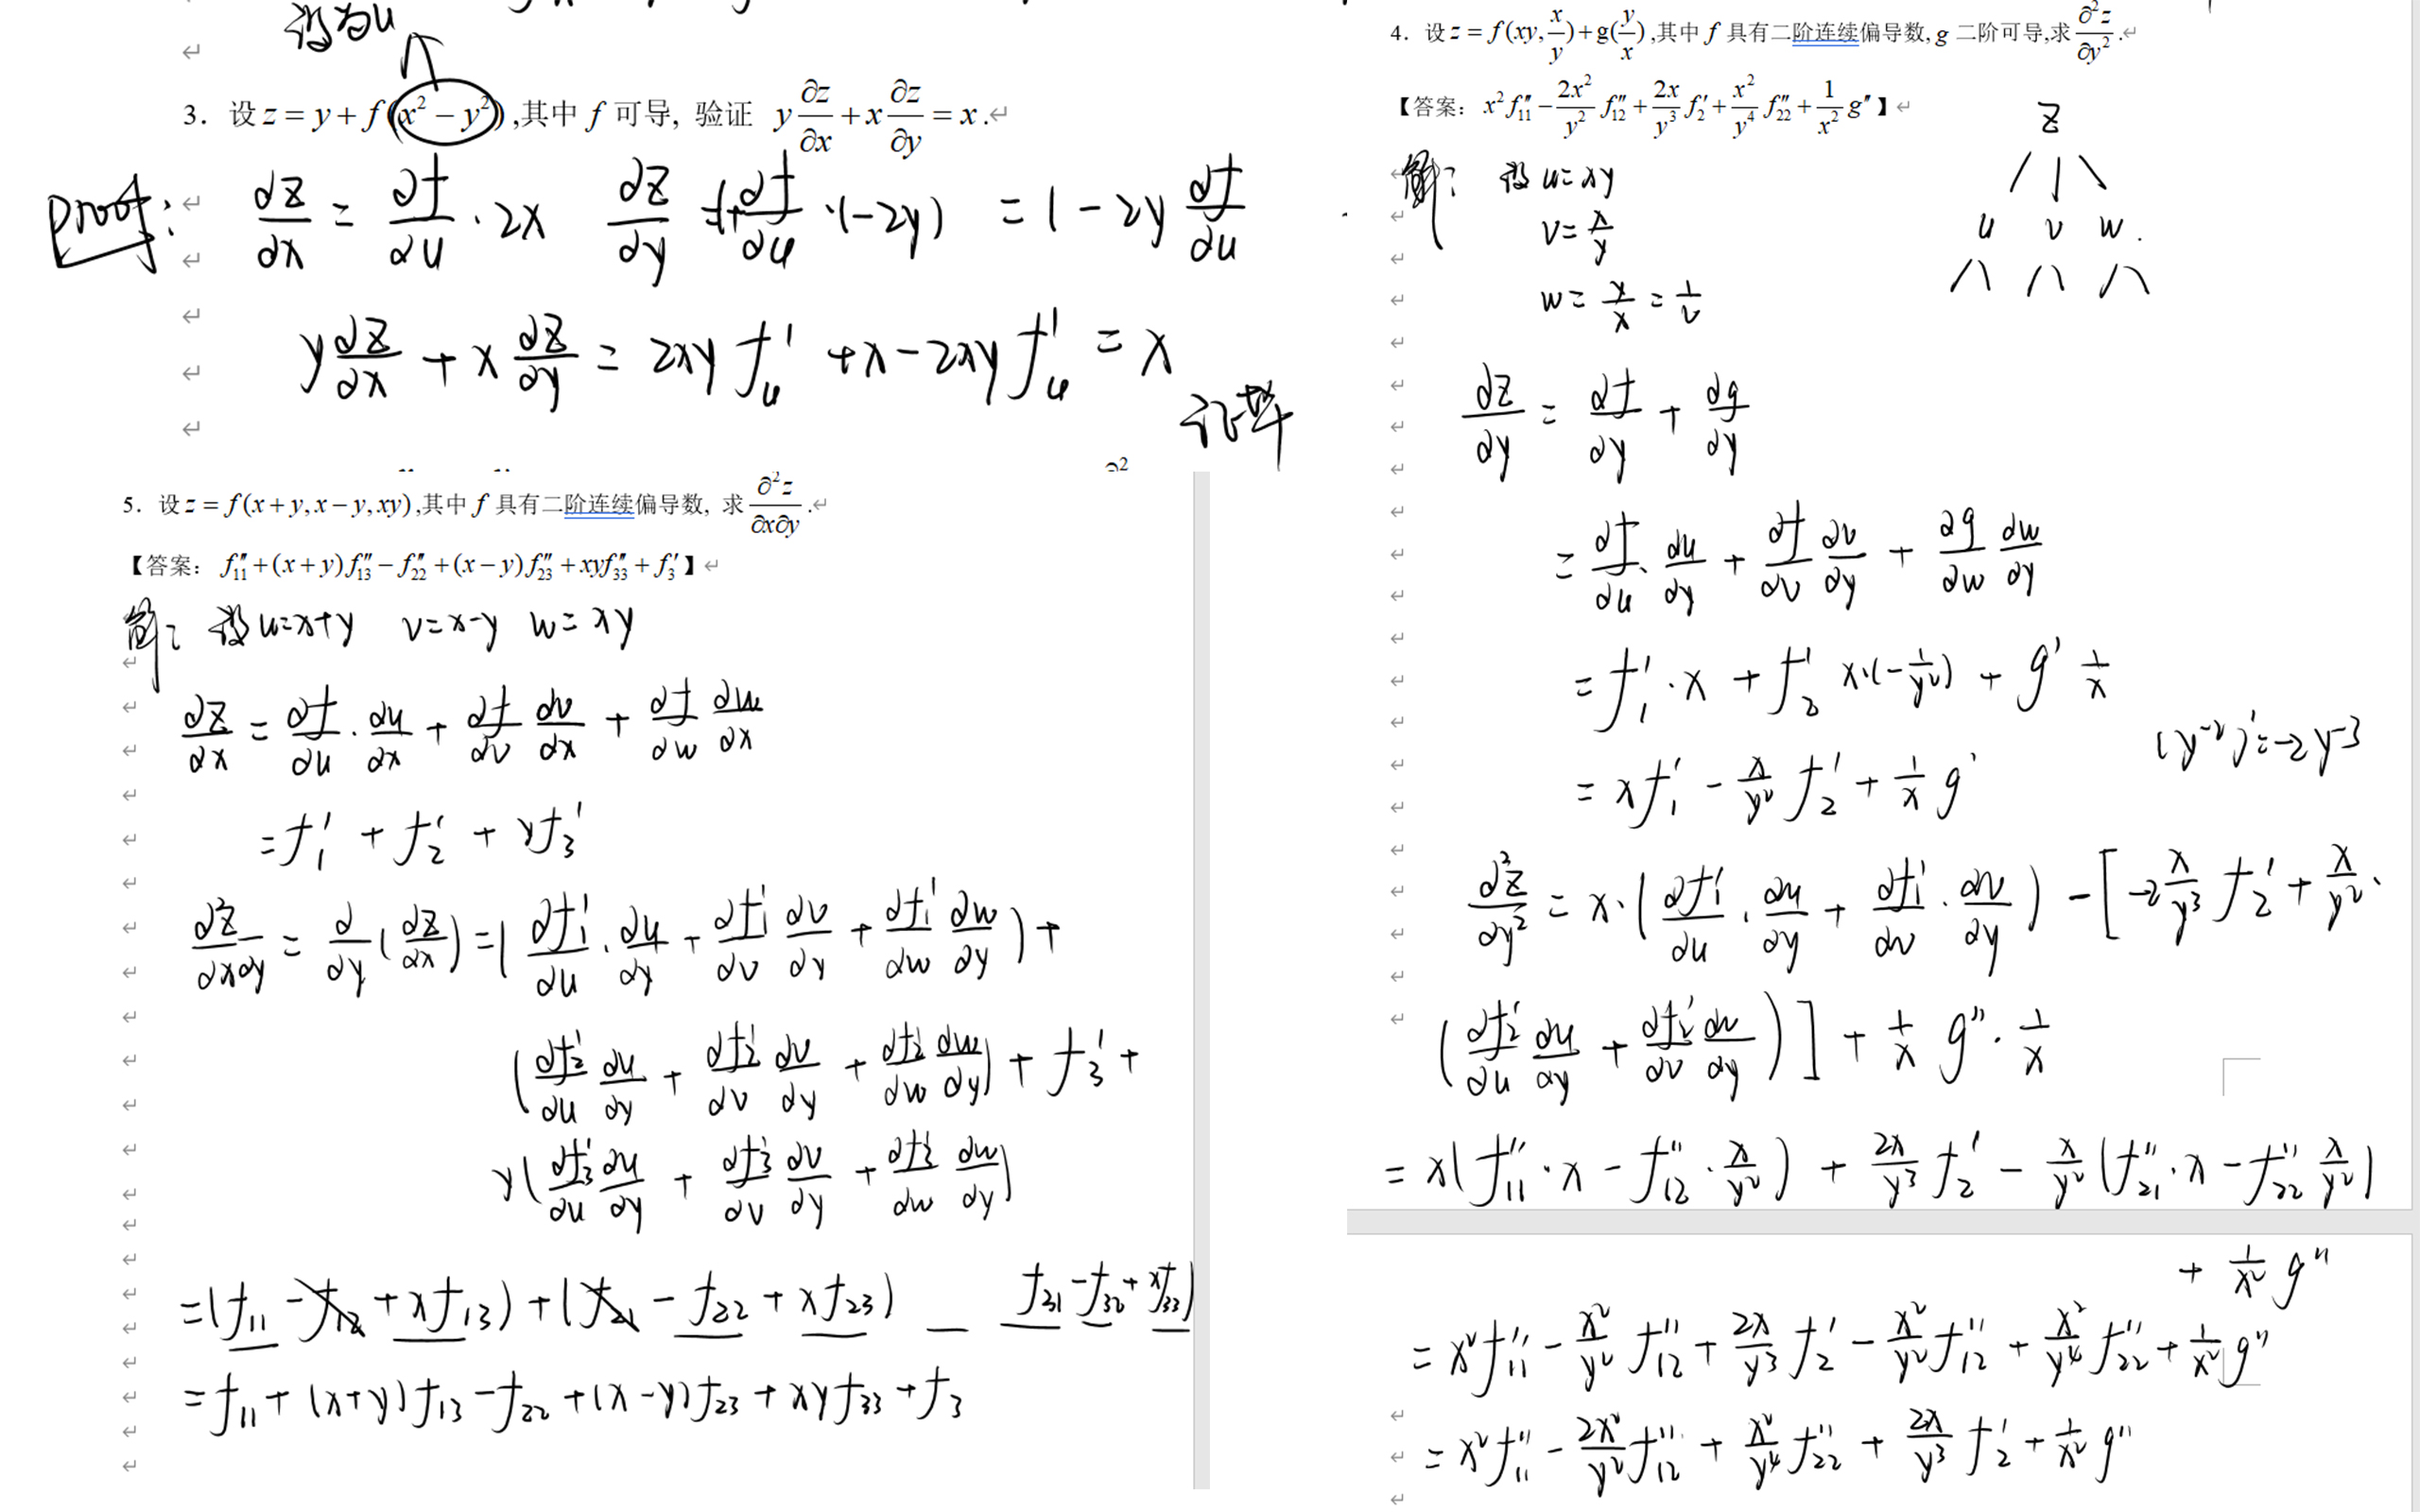 设为u
3. 设 z = y + f(x² − y²),其中 f 可导, 验证 y ∂z/∂x + x ∂z/∂y = x.
proof: ∂z/∂x = ∂f/∂u · 2x ∂z/∂y = 1+∂f/∂u ·(−2y) = 1 − 2y ∂f/∂u
y ∂z/∂x + x ∂z/∂y = 2xy f'u + x − 2xy f'u = x
证毕
5. 设 z = f(x + y, x − y, xy),其中 f 具有二阶连续偏导数, 求 ∂²z/∂x∂y .
【答案: f''11 + (x + y)f''13 − f''22 + (x − y)f''23 + xyf''33 + f'3】
解: 设 u=x+y v=x-y w=xy
∂z/∂x = ∂f/∂u · ∂u/∂x + ∂f/∂v ∂v/∂x + ∂f/∂w ∂w/∂x
= f'1 + f'2 + yf'3
∂²z/∂x∂y = ∂/∂y (∂z/∂x) = (∂f'1/∂u · ∂u/∂y + ∂f'1/∂v ∂v/∂y + ∂f'1/∂w ∂w/∂y) +
(∂f'2/∂u ∂u/∂y + ∂f'2/∂v ∂v/∂y + ∂f'2/∂w ∂w/∂y) + f'3 +
y(∂f'3/∂u ∂u/∂y + ∂f'3/∂v ∂v/∂y + ∂f'3/∂w ∂w/∂y)
= (f11 − f12 + xf13) + (f21 − f22 + xf23) f31 − f32 + xf33)
= f11 + (x+y)f13 − f22 + (x−y)f23 + xyf33 + f3
4. 设 z = f(xy, x/y) + g(y/x),其中 f 具有二阶连续偏导数, g 二阶可导,求 ∂²z/∂y² .
【答案: x²f''11 − 2x²/y² f''12 + 2x/y³ f'2 + x²/y⁴ f''22 + 1/x² g''】
z
u v w.
解: 设 u=xy
v = x/y
w = y/x = 1/v
∂z/∂y = ∂f/∂y + ∂g/∂y
= ∂f/∂u · ∂u/∂y + ∂f/∂v ∂v/∂y + ∂g/∂w ∂w/∂y
= f'1 · x + f'2 x·(−1/y²) + g' 1/x
(y⁻²)' = −2y⁻³
= xf'1 − x/y² f'2 + 1/x g'
∂²z/∂y² = x·(∂f'1/∂u · ∂u/∂y + ∂f'1/∂v · ∂v/∂y) − [−2 x/y³ f'2 + x/y² ·
(∂f'2/∂u ∂u/∂y + ∂f'2/∂v ∂v/∂y)] + 1/x g'' · 1/x
= x(f''11 · x − f''12 · x/y²) + 2x/y³ f'2 − x/y² (f''21 · x − f''22 x/y²)
+ 1/x² g''
= x²f''11 − x²/y² f''12 + 2x/y³ f'2 − x²/y² f''12 + x²/y⁴ f''22 + 1/x² g''
= x²f''11 − 2x²/y² f''12 + x²/y⁴ f''22 + 2x/y³ f'2 + 1/x² g''